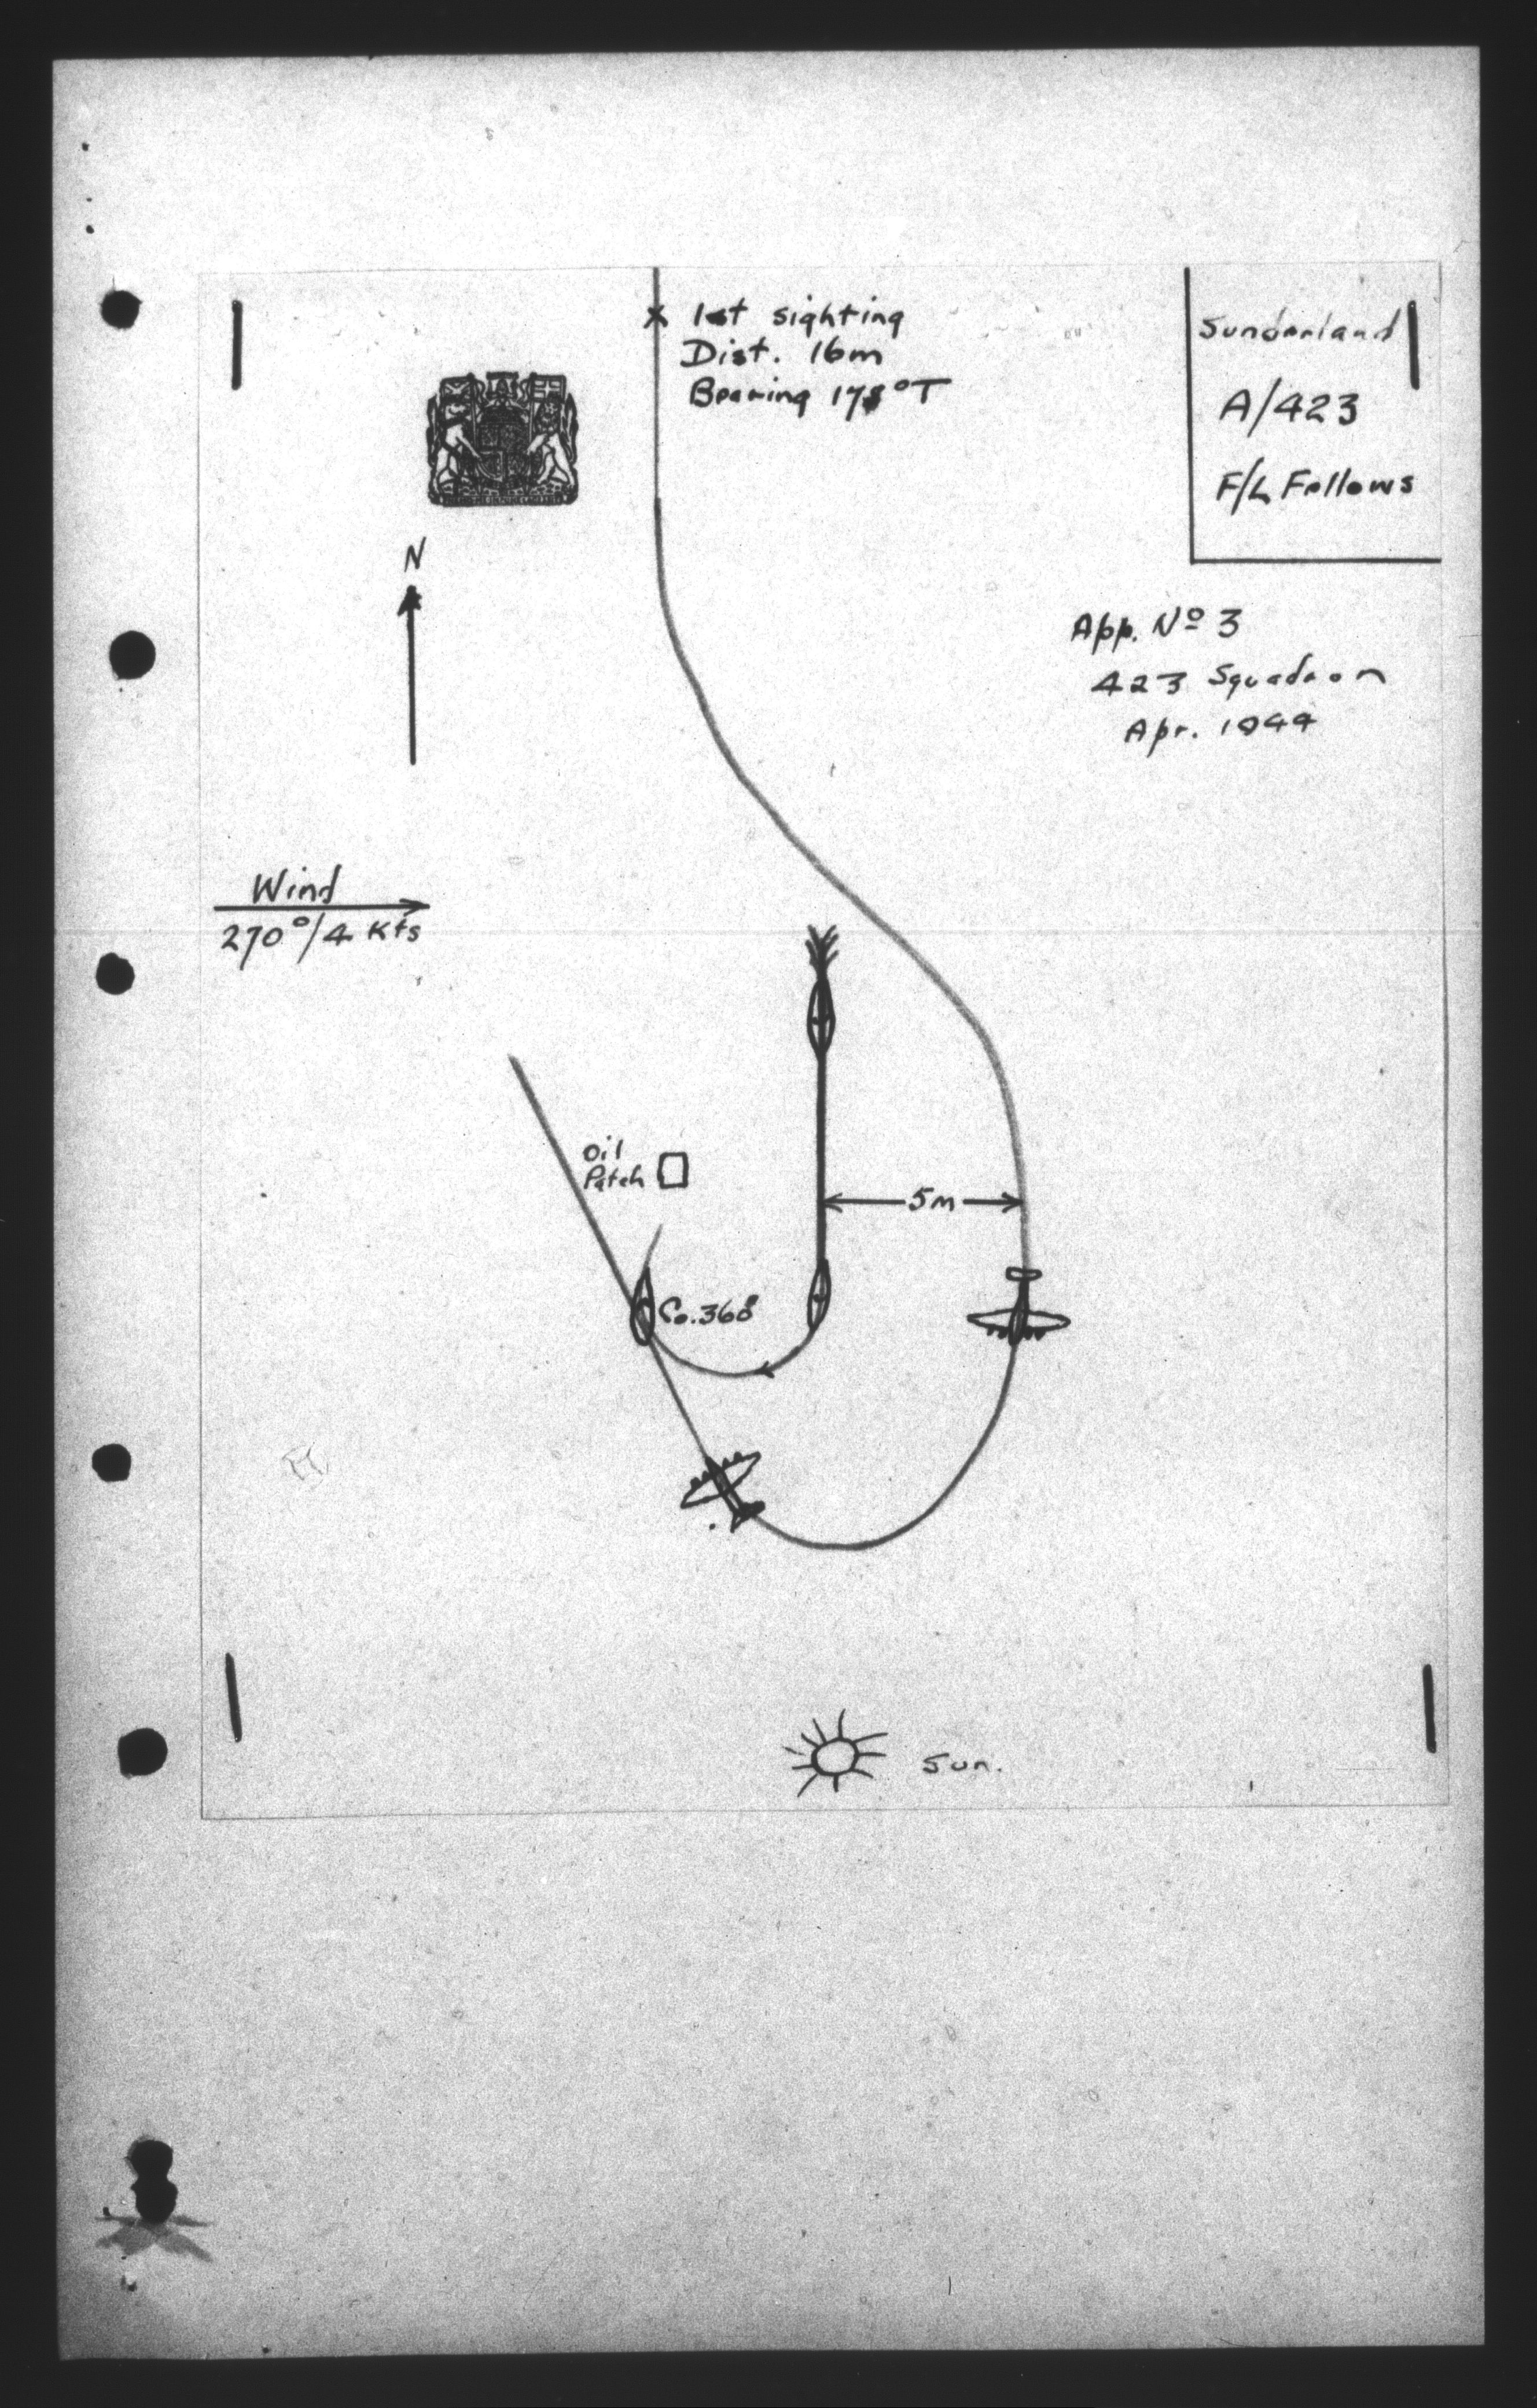 1st sighting
Dist. 16m
Bearing 178°T
Sunderland
A/423
F/L Fellows
N
App. Nº 3
423 Squadron
Apr. 1944
Wind
270°/4 Kts
Oil
Patch
5m
Co. 360°
Sun.